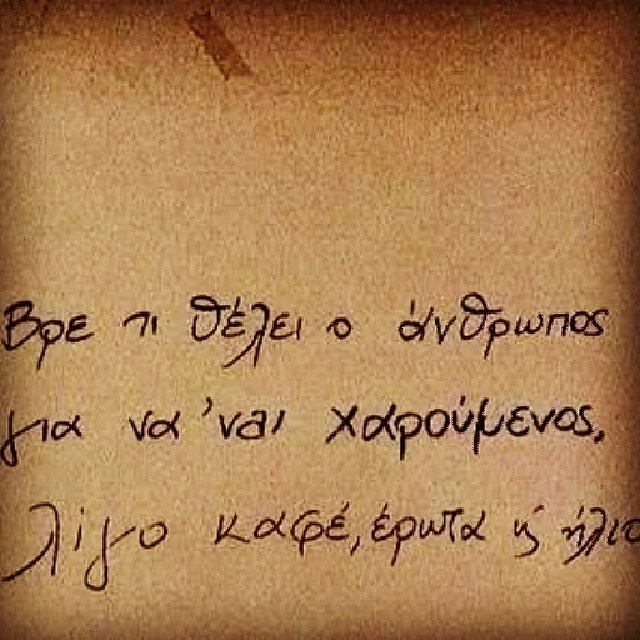 Βρε τι θέλει ο άνθρωπος
για να 'ναι χαρούμενος,
λίγο καφέ, έρωτα κ' ήλιο